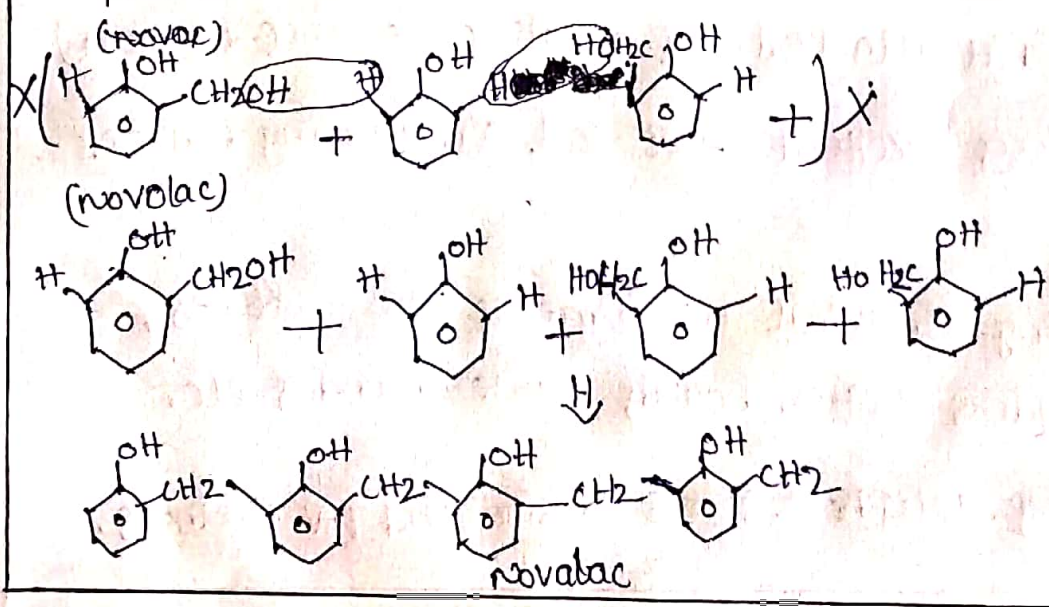 (novoc)
X( H OH CH2OH + H OH H HOH2C OH H + ) X
(novolac)
H OH CH2OH + H OH H + HOH2C OH H + HO H2C OH H
H
OH CH2 OH CH2 OH CH2 OH CH2
Novalac